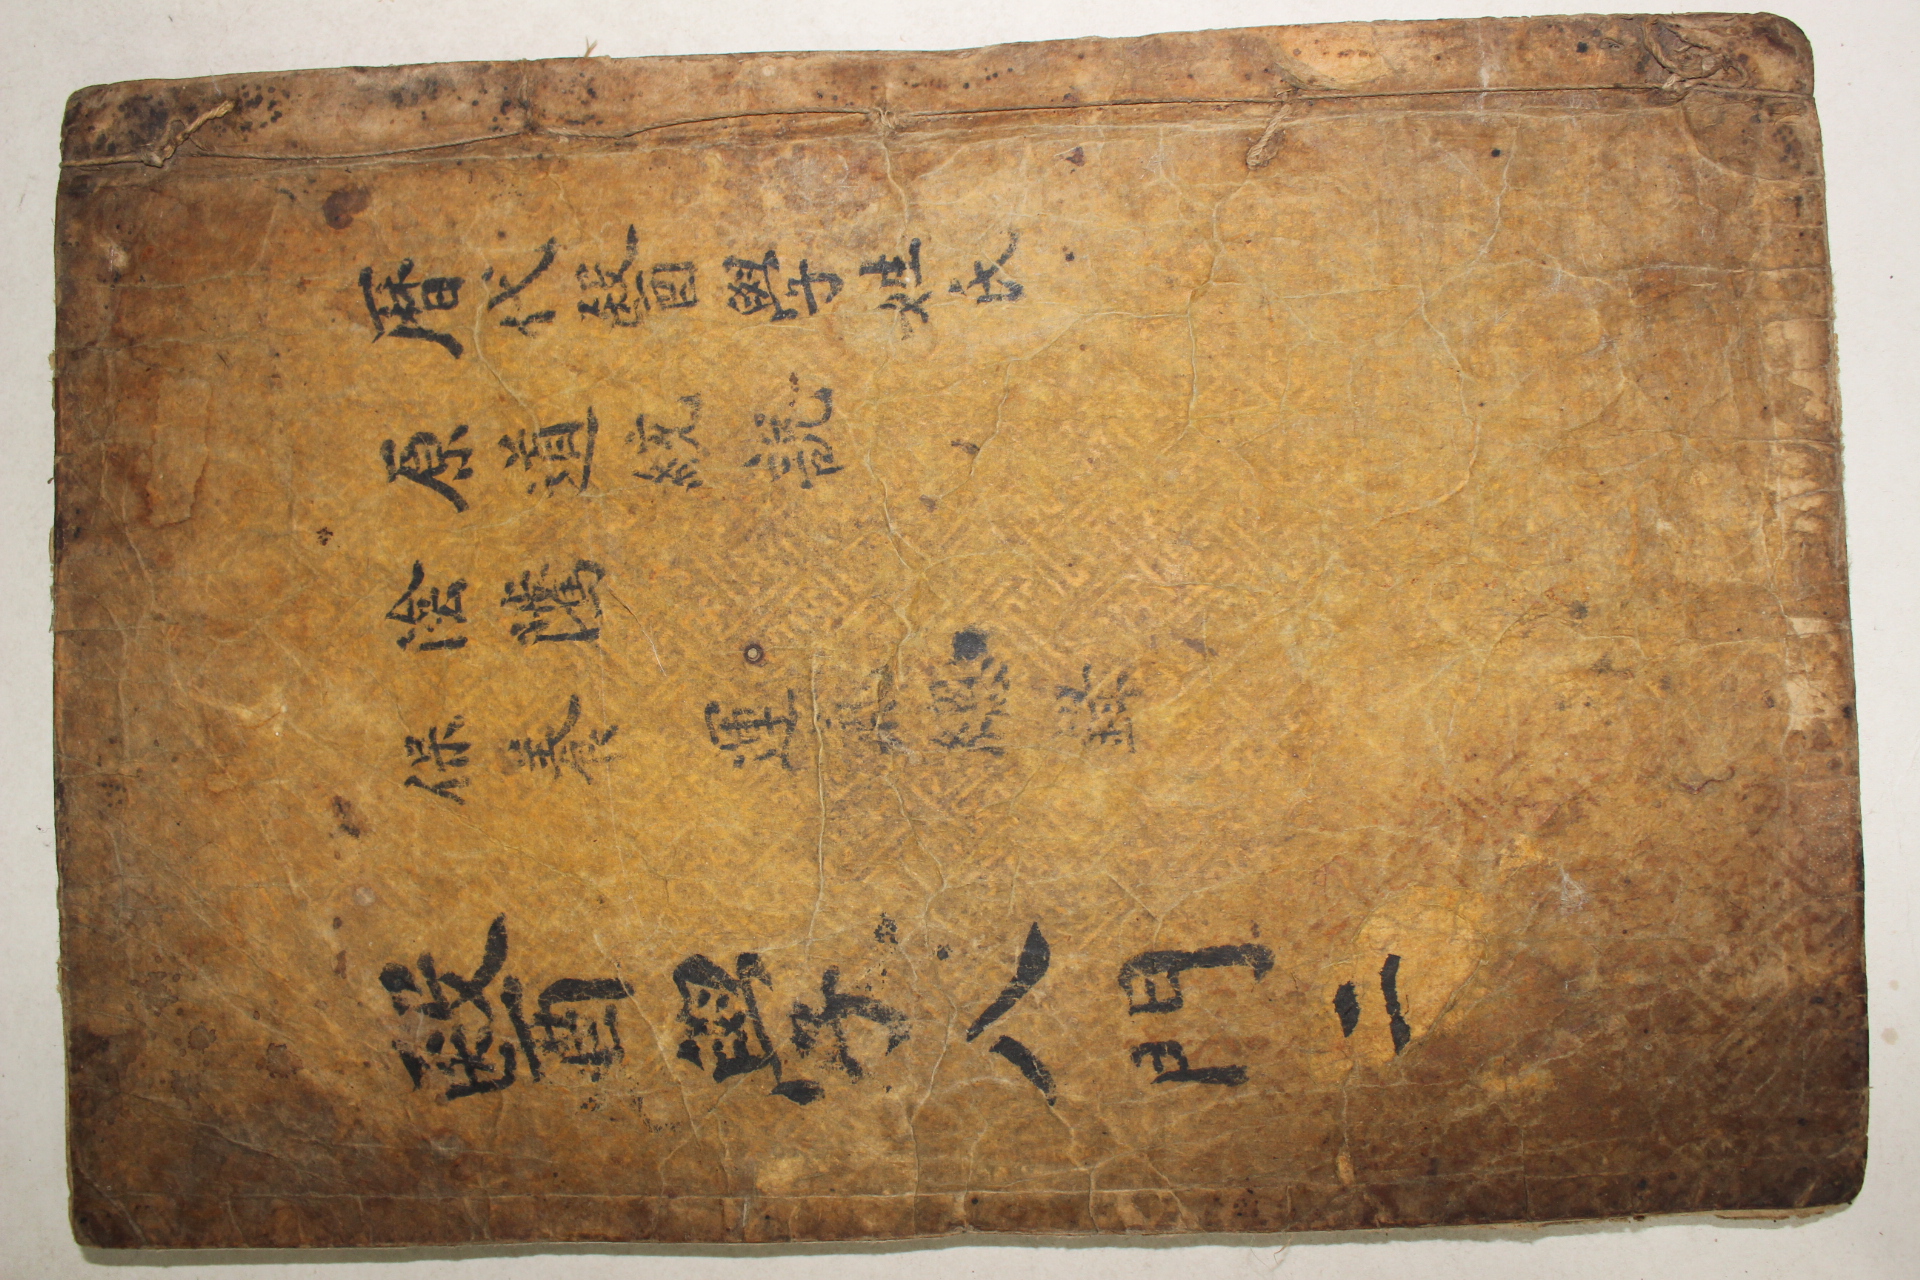 曆代醫學姓氏
原道統說
陰隲
保養 運氣總
醫學入門 二